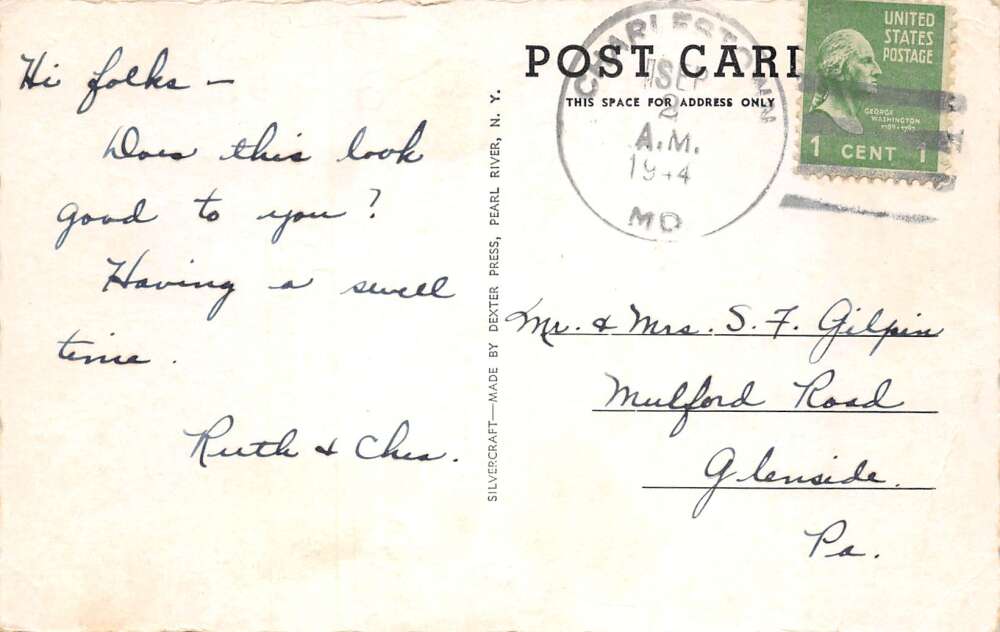 Hi folks –
Does this look
good to you?
Having a swell
time.
Ruth & Ches.
SILVERCRAFT—MADE BY DEXTER PRESS, PEARL RIVER, N. Y.
POST CARD
THIS SPACE FOR ADDRESS ONLY
CHARLESTOWN
SEP
2
A.M.
1944
MD
UNITED
STATES
POSTAGE
GEORGE
WASHINGTON
1789-1797
1 CENT 1
Mr. & Mrs. S. F. Gilpin
Mulford Road
Glenside.
Pa.